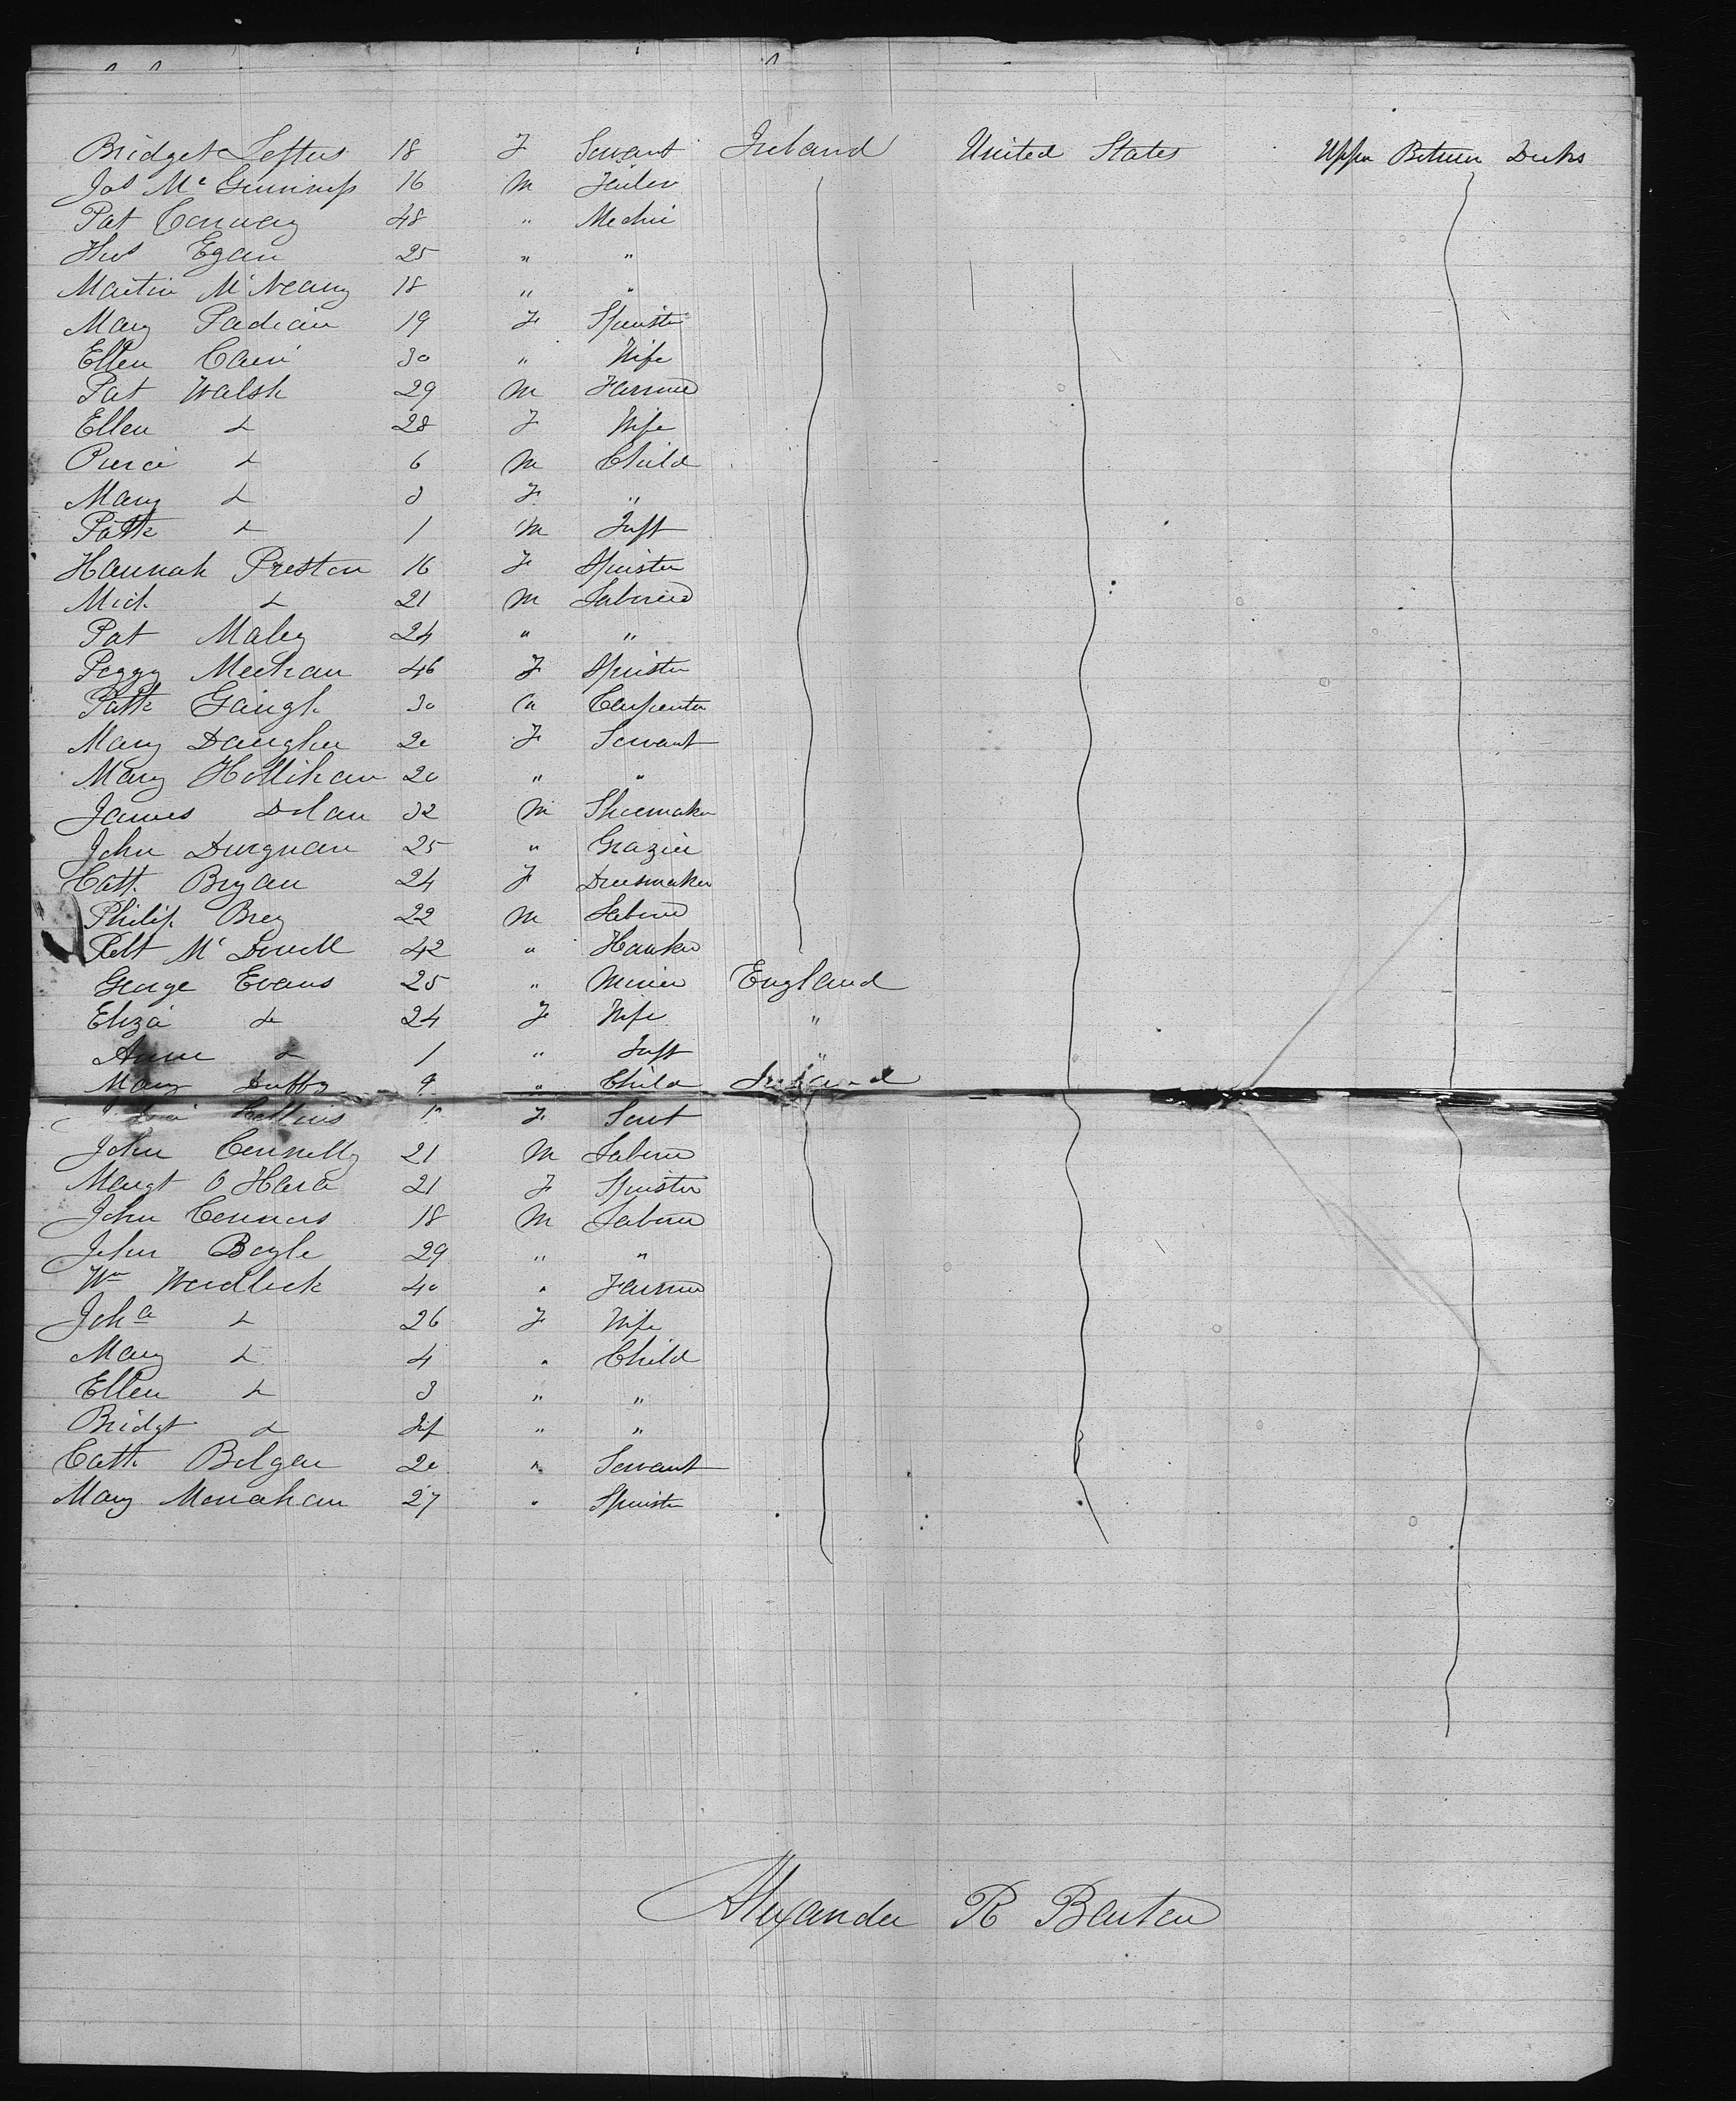 Bridget Loftus 18 F Servant Ireland United States Upper Between Decks
Jas Mc Guinness 16 M Tailor
Pat Conway 48 " Mechc
Thos Egan 25 " "
Martin McNeany 18 " "
Mary Padian 19 F Spinster
Ellen Cain 30 " Wife
Pat Walsh 29 M Farmer
Ellen do 28 F Wife
Pierce do 6 M Child
Mary do 3 F "
Patk do 1 M Inft
Hannah Preston 16 F Spinster
Mich do 21 M Laborer
Pat Maley 24 " "
Peggy Meehan 46 F Spinster
Patk Gaugh 30 M Carpenter
Mary Daugher 20 F Servant
Mary Hollihan 20 " "
James Dolan 32 M Shoemaker
John Durgnan 25 " Grazier
Cath Bryan 24 F Dressmaker
Philip Brey 22 M Laborer
Robt Mc Dowell 42 " Hawker
George Evans 25 " Miner England
Eliza do 24 F Wife "
Anne do 1 " Inft "
Mary Duffy 9 " Child Ireland
Collins F Servt
John Connelly 21 M Laborer
Margt O Hara 21 F Spinster
John Connors 18 M Laborer
John Boyle 29 " "
Wm Wordlick 40 " Farmer
Joha do 26 F Wife
Mary do 4 " Child
Ellen do 3 " "
Bridgt do Inf " "
Cath Bolger 20 " Servant
Mary Monahan 27 " Spinster
Alexander R Benton